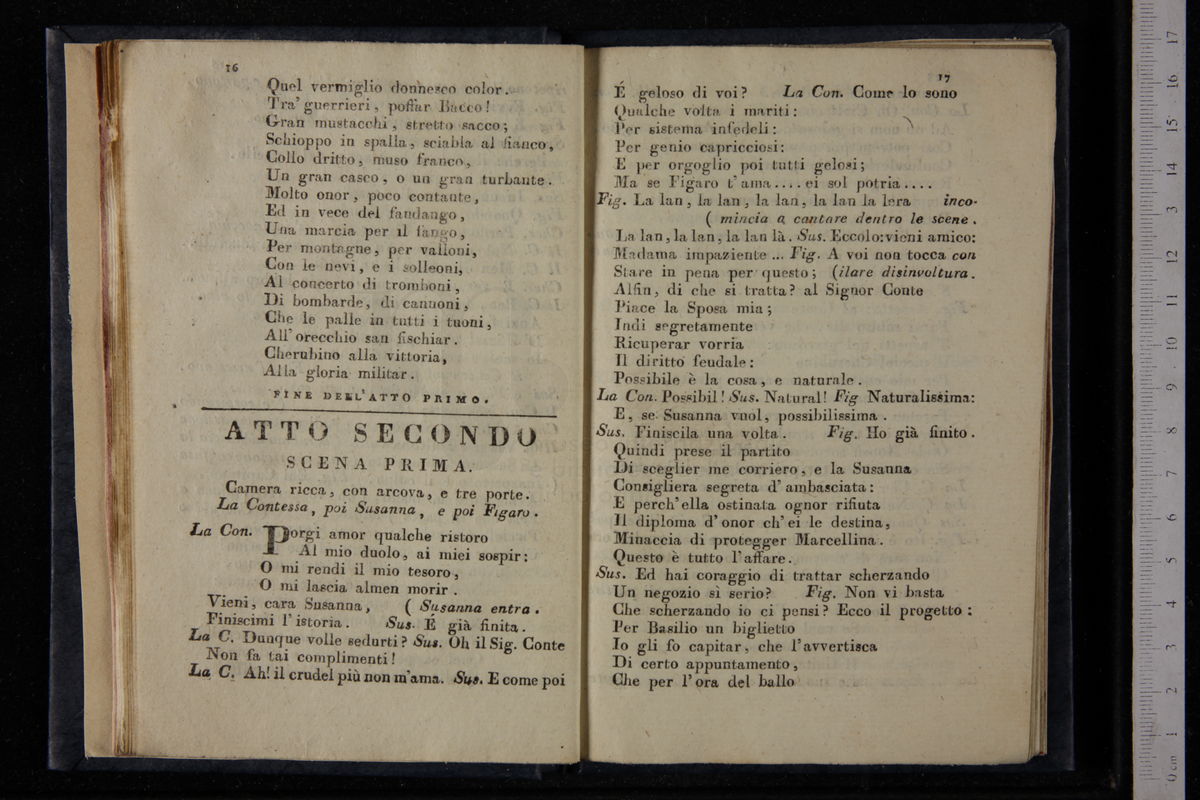 16
Quel vermiglio donnesco color.
Tra' guerrieri, poffar Bacco!
Gran mustacchi, stretto sacco;
Schioppo in spalla, sciabla al fianco,
Collo dritto, muso franco,
Un gran casco, o un gran turbante.
Molto onor, poco contante,
Ed in vece del fandango,
Una marcia per il fango,
Per montagne, per valloni,
Con le nevi, e i solleoni,
Al concerto di tromboni,
Di bombarde, di cannoni,
Che le palle in tutti i tuoni,
All' orecchio san fischiar.
Cherubino alla vittoria,
Alla gloria militar.
FINE DELL'ATTO PRIMO.
ATTO SECONDO
SCENA PRIMA.
Camera ricca, con arcova, e tre porte.
La Contessa, poi Susanna, e poi Figaro.
La Con. Porgi amor qualche ristoro
Al mio duolo, ai miei sospir:
O mi rendi il mio tesoro,
O mi lascia almen morir.
Vieni, cara Susanna, ( Susanna entra.
Finiscimi l'istoria. Sus. É già finita.
La C. Dunque volle sedurti? Sus. Oh il Sig. Conte
Non fa tai complimenti!
La C. Ah! il crudel più non m'ama. Sus. E come poi
17
É geloso di voi? La Con. Come lo sono
Qualche volta i mariti:
Per sistema infedeli:
Per genio capricciosi:
E per orgoglio poi tutti gelosi;
Ma se Figaro t'ama.... ei sol potria....
Fig. La lan, la lan, la lan, la lan la lera inco-
( mincia a cantare dentro le scene.
La lan, la lan, la lan là. Sus. Eccolo: vieni amico:
Madama impaziente ... Fig. A voi non tocca con
Stare in pena per questo; (ilare disinvoltura.
Alfin, di che si tratta? al Signor Conte
Piace la Sposa mia;
Indi segretamente
Ricuperar vorria
Il diritto feudale:
Possibile è la cosa, e naturale.
La Con. Possibil! Sus. Natural! Fig Naturalissima:
E, se Susanna vuol, possibilissima.
Sus. Finiscila una volta. Fig. Ho già finito.
Quindi prese il partito
Di sceglier me corriero, e la Susanna
Consigliera segreta d'ambasciata:
E perch'ella ostinata ognor rifiuta
Il diploma d'onor ch'ei le destina,
Minaccia di protegger Marcellina.
Questo è tutto l'affare.
Sus. Ed hai coraggio di trattar scherzando
Un negozio sì serio? Fig. Non vi basta
Che scherzando io ci pensi? Ecco il progetto:
Per Basilio un biglietto
Io gli fo capitar, che l'avvertisca
Di certo appuntamento,
Che per l'ora del ballo
0 cm 1 2 3 4 5 6 7 8 9 10 11 12 13 14 15 16 17